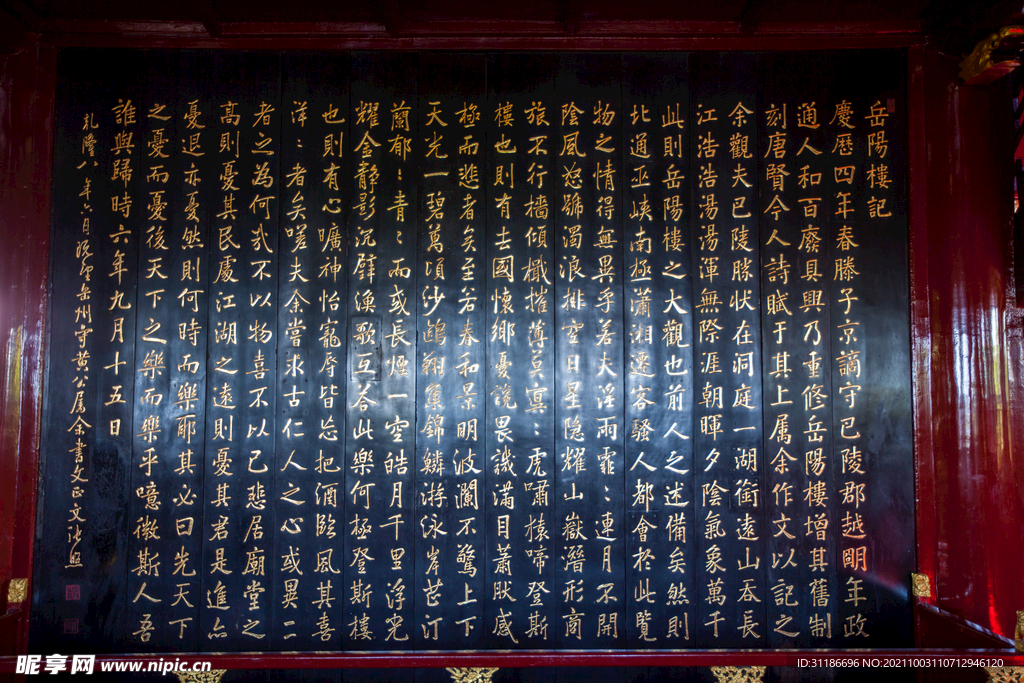 岳陽樓記
慶歷四年春滕子京謫守巴陵郡越明年政
通人和百廢具興乃重修岳陽樓增其舊制
刻唐賢今人詩賦于其上属余作文以記之
余觀夫巴陵勝狀在洞庭一湖銜遠山吞長
江浩浩湯湯渾無際涯朝暉夕陰氣象萬千
此則岳陽樓之大觀也前人之述備矣然則
北通巫峽南極瀟湘遷客騷人都會於此覽
物之情得無異乎若夫淫雨霏〻連月不開
陰風怒號濁浪排空日星隐耀山嶽潛形商
旅不行檣傾檝摧薄暮冥〻虎嘯猿啼登斯
樓也則有去國懷鄉憂讒畏譏滿目蕭然感
極而悲者矣至若春和景明波瀾不驚上下
天光一碧萬頃沙鷗翔集錦鱗游泳岸芷汀
蘭郁〻青〻而或長煙一空皓月千里浮光
耀金静影沉璧漁歌互答此樂何極登斯樓
也則有心曠神怡寵辱皆忘把酒臨風其喜
洋〻者矣嗟夫余嘗求古仁人之心或異二
者之為何哉不以物喜不以己悲居廟堂之
高則憂其民處江湖之遠則憂其君是進亦
憂退亦憂然則何時而樂耶其必曰先天下
之憂而憂後天下之樂而樂乎噫微斯人吾
誰與歸時六年九月十五日
乾隆八年六月岳州守黄公属余書文正文張照
昵享网 www.nipic.cn
ID:31186696 NO:20211003110712946120